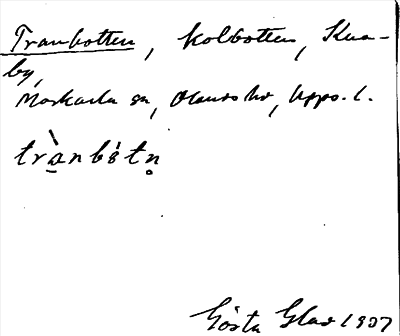 Tranbotten, kolbotten, Kna-
by,
Morkarla sn, Olands hd, Upps. l.
trànbótn̥
Gösta Glas 1907